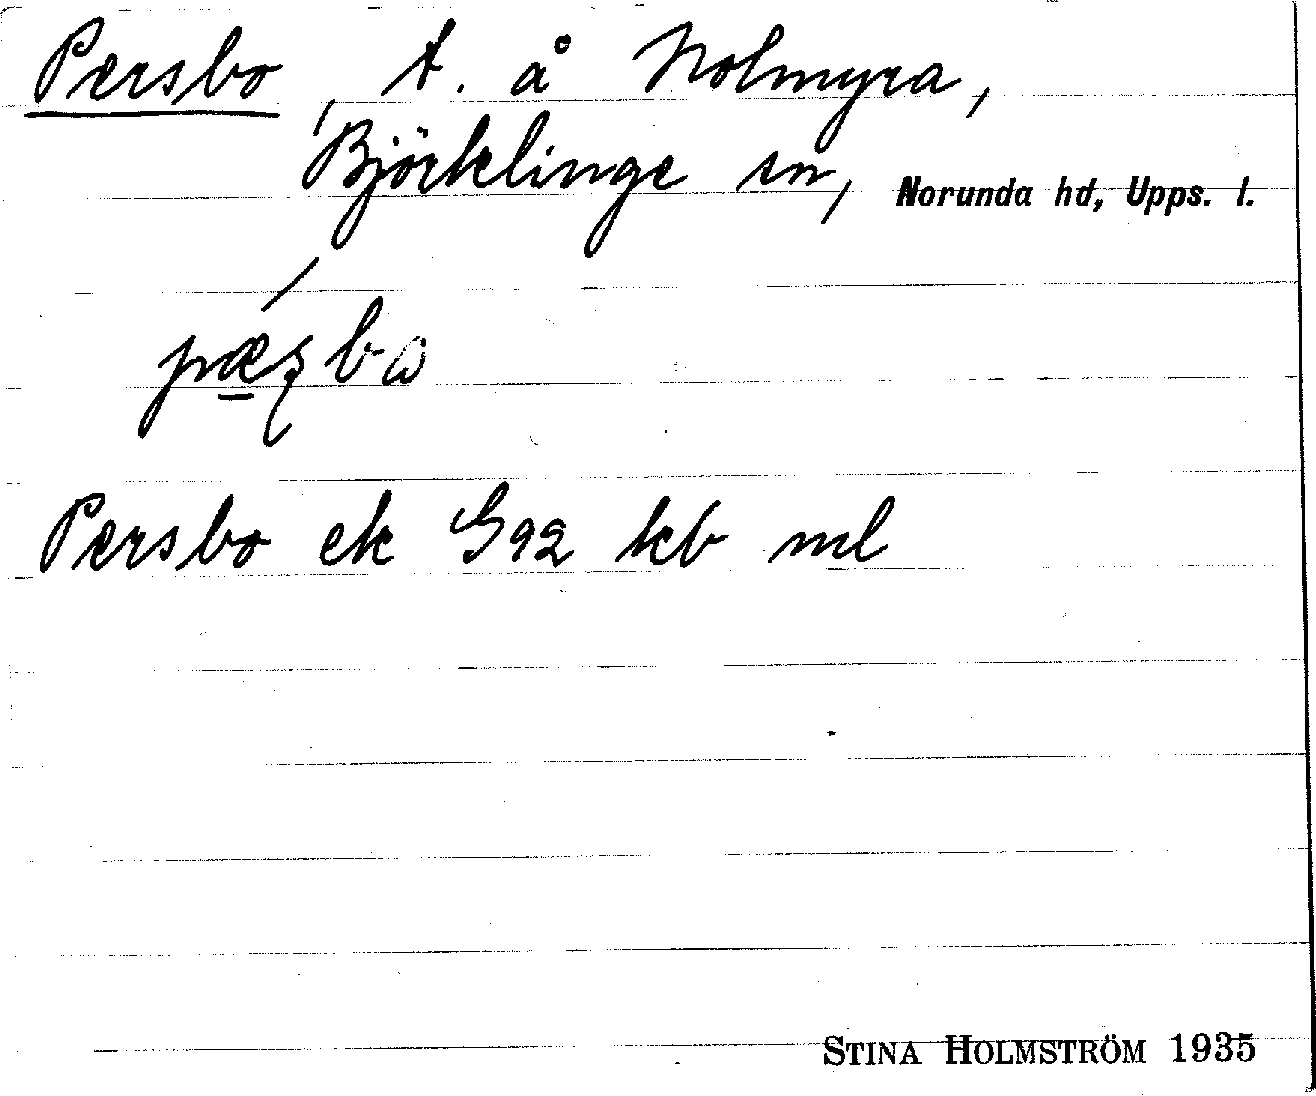 Persbo, t. å Nolmyra,
Björklinge sn, Norunda hd, Upps. l.
pæʂbɷ
Persbo ek G92 kb ml
STINA HOLMSTRÖM 1935